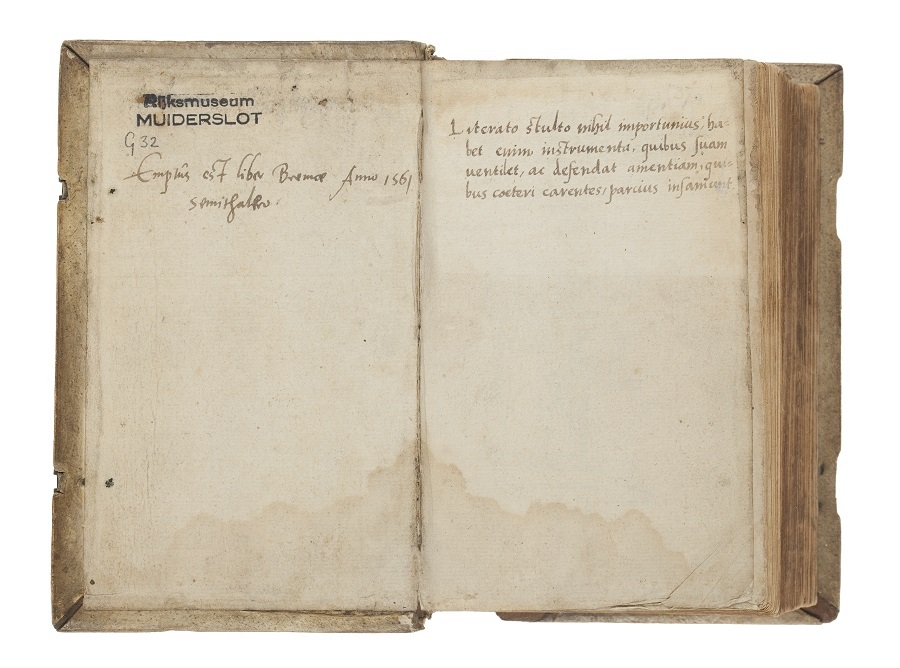 Rijksmuseum
MUIDERSLOT
G 32
Emptus est liber Bremæ Anno 1561
semithalero.
Literato stulto nihil importunius; ha-
bet enim instrumenta, quibus suam
ventilet, ac defendat amentiam; qui-
bus cœteri carentes, parcius insaniunt.